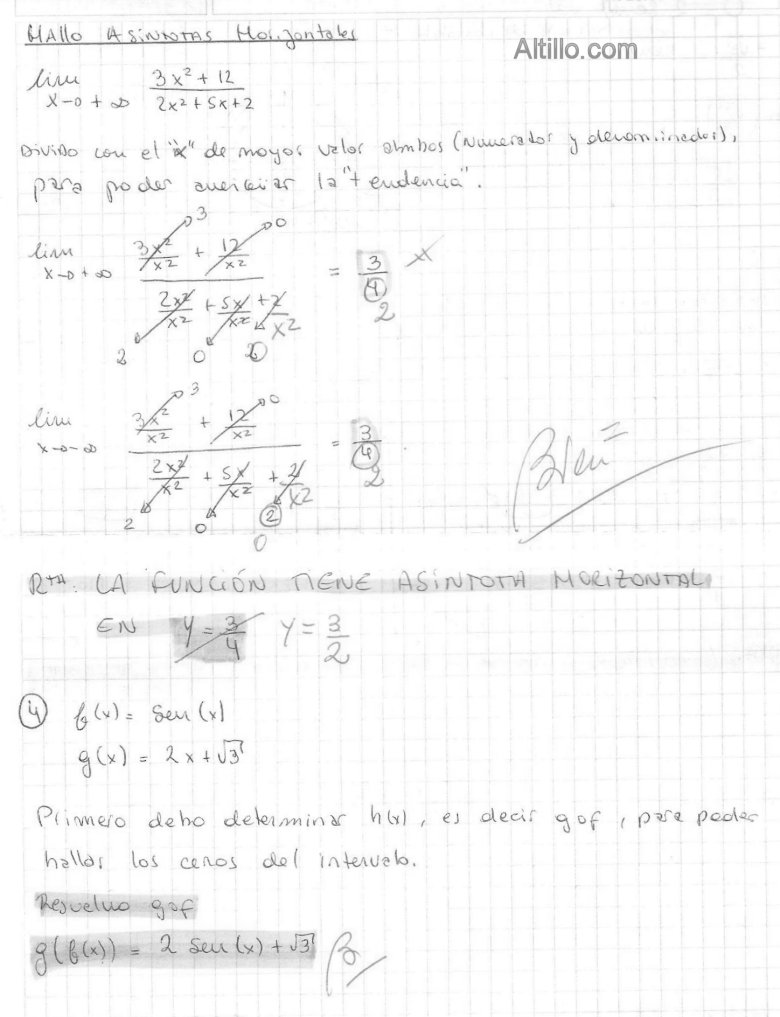 Hallo Asintotas Horizontales
Altillo.com
lim x→+∞ (3x² + 12)/(2x² + 5x + 2)
Divido con el "x" de mayor valor ambos (numerador y denominador),
para poder la "tendencia".
lim x→+∞ (3x²/x² + 12/x²)/(2x²/x² + 5x/x² + 2/x²) = 3/4
3 0
2
2 0
lim x→-∞ (3x²/x² + 12/x²)/(2x²/x² + 5x/x² + 2/x²) = 3/4
3 0
2
2 0 2
0
Bien
Rta. LA FUNCIÓN TIENE ASINTOTA HORIZONTAL
EN y = 3/4 y = 3/2
4 f(x) = Sen(x)
g(x) = 2x + √3
Primero debo determinar h(x), es decir gof, para poder
hallar los ceros del intervalo.
Resuelvo gof
g(f(x)) = 2 Sen(x) + √3 B